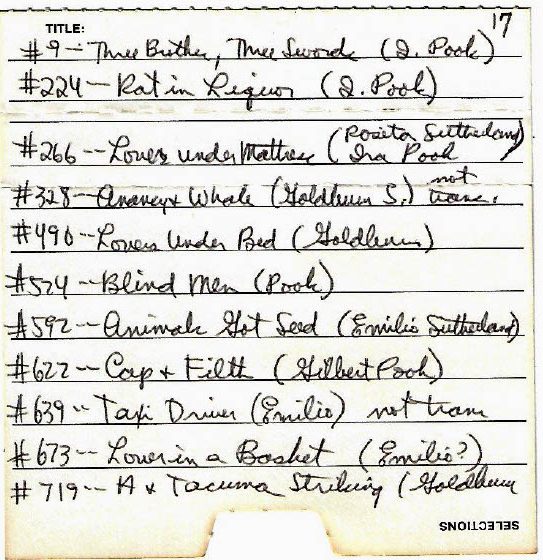 17
TITLE:
#9-- Three Brother, Three Swords (I. Pook)
#224-- Rat in Liquor (I. Pook)
#266-- Lovers under Mattress (Roseta Sutherland) Ira Pook
#328-- Anancy + Whale (Goldburn S.) not trans.
#496-- Lovers Under Bed (Goldburn)
#524-- Blind Men (Pook)
#592-- Animals Got Seed (Emilio Sutherland)
#622-- Cap + Filth (Gilbert Pook)
#639-- Taxi Driver (Emilio) not tran
#673-- Lover in a Basket (Emilio?)
#719-- A + Tacuma Striking (Goldburn
SELECTIONS